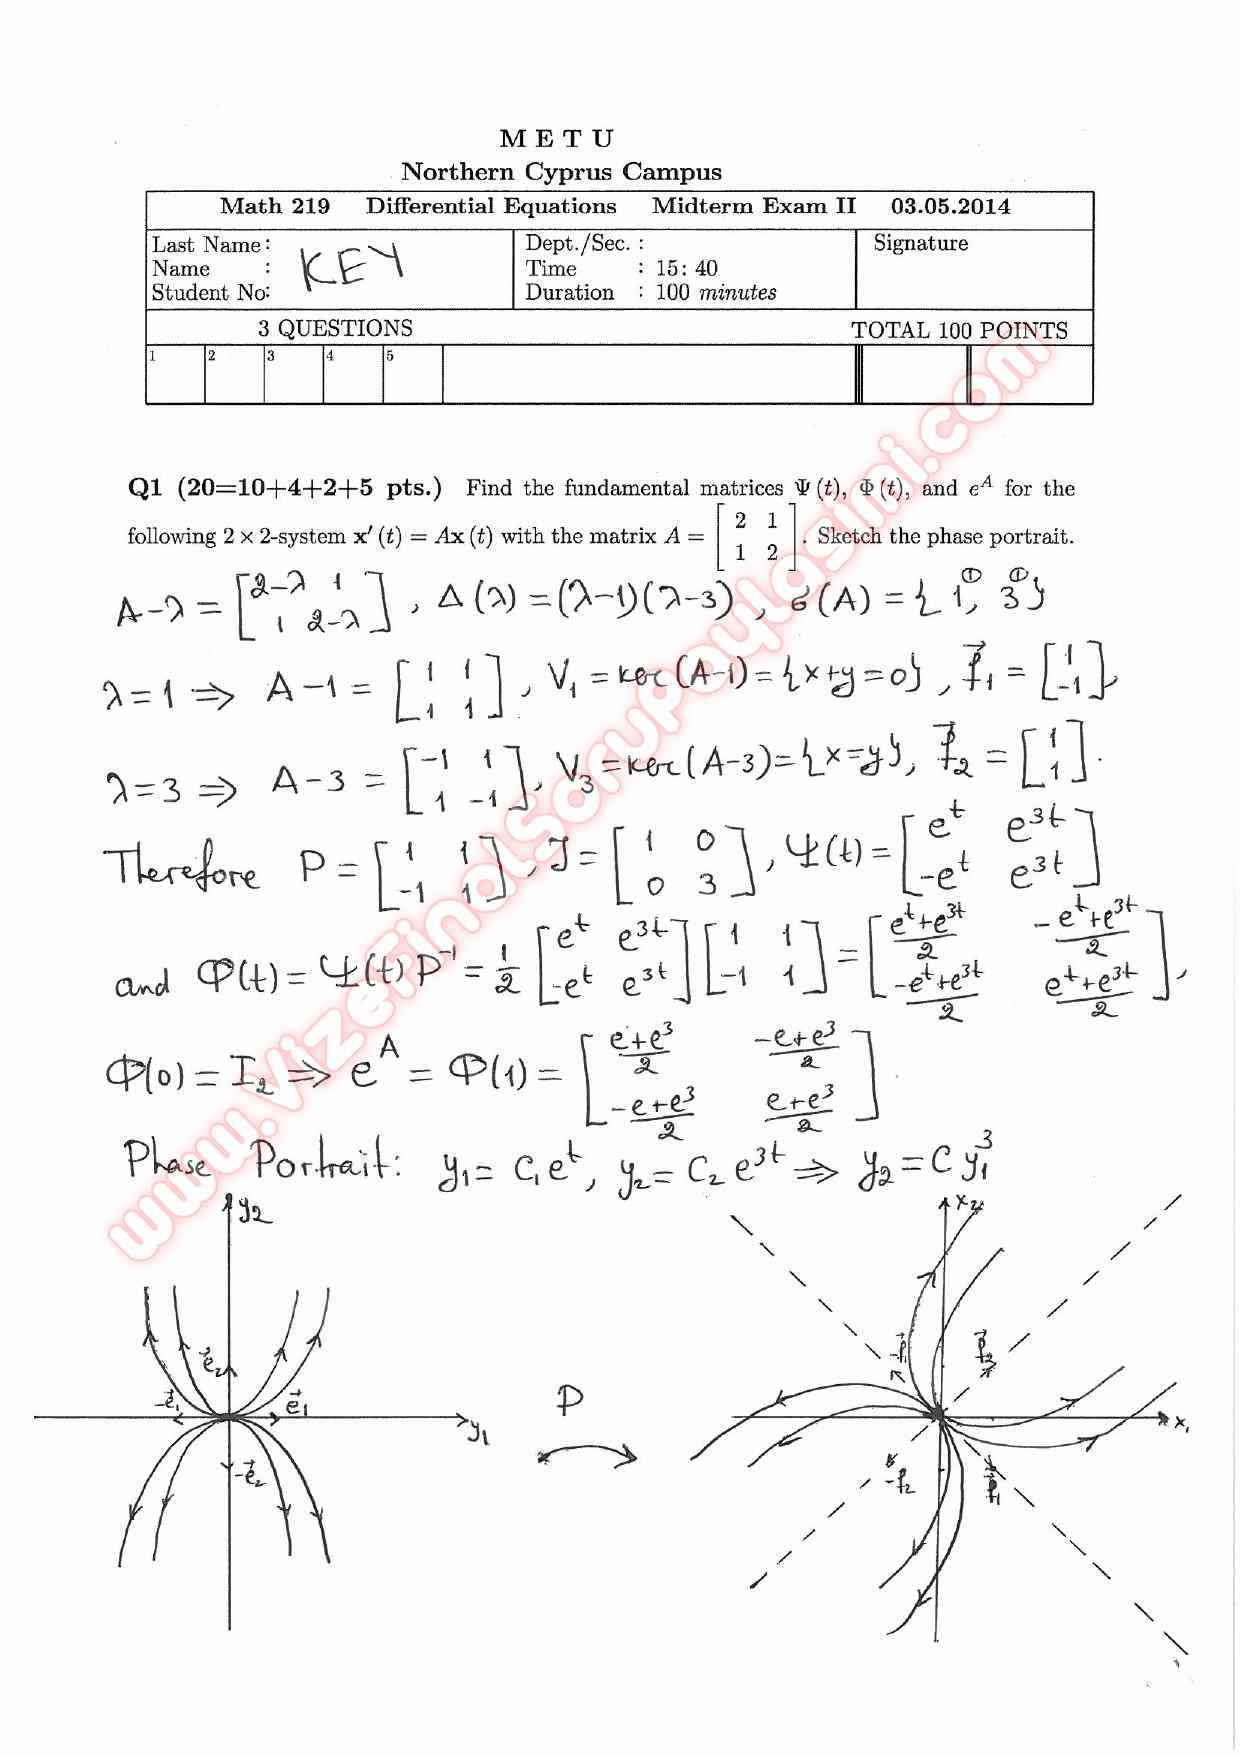 M E T U
Northern Cyprus Campus
Math 219 Differential Equations Midterm Exam II 03.05.2014
Last Name : KEY Dept./Sec. : Signature
Name : Time : 15: 40
Student No: Duration : 100 minutes
3 QUESTIONS TOTAL 100 POINTS
1 2 3 4 5
Q1 (20=10+4+2+5 pts.) Find the fundamental matrices Ψ (t), Φ (t), and e^A for the
following 2 × 2-system x′ (t) = Ax (t) with the matrix A = [2 1; 1 2]. Sketch the phase portrait.
A-λ = [2-λ 1; 1 2-λ], Δ(λ) = (λ-1)(λ-3), σ(A) = {1^①, 3^①}
λ=1 ⇒ A-1 = [1 1; 1 1], V₁ = ker(A-1) = {x+y=0}, f⃗₁ = [1; -1],
λ=3 ⇒ A-3 = [-1 1; 1 -1], V₃ = ker(A-3) = {x=y}, f⃗₂ = [1; 1].
Therefore P = [1 1; -1 1], J = [1 0; 0 3], Ψ(t) = [e^t e^3t; -e^t e^3t]
and Φ(t) = Ψ(t) P^-1 = 1/2 [e^t e^3t; -e^t e^3t] [1 1; -1 1] = [(e^t+e^3t)/2 (-e^t+e^3t)/2; (-e^t+e^3t)/2 (e^t+e^3t)/2],
Φ(0) = I₂ ⇒ e^A = Φ(1) = [(e+e^3)/2 (-e+e^3)/2; (-e+e^3)/2 (e+e^3)/2]
Phase Portrait: y₁ = C₁e^t, y₂ = C₂e^3t ⇒ y₂ = C y₁^3
y₂ x₂
e⃗₂ -f⃗₁ f⃗₂
-e⃗₁ e⃗₁ P
y₁ x₁
-e⃗₂ -f₂ f⃗₁
www.VizeFinalSoruPaylasimi.com